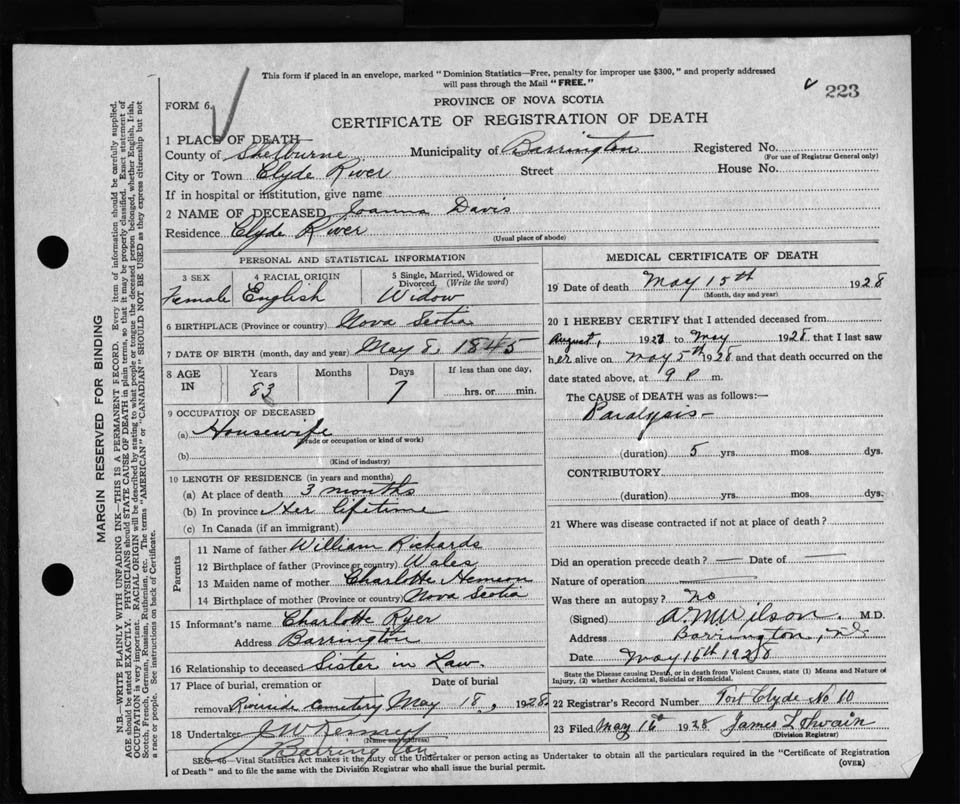 This form if placed in an envelope, marked "Dominion Statistics—Free, penalty for improper use $300," and properly addressed
will pass through the Mail "FREE."
223
PROVINCE OF NOVA SCOTIA
FORM 6.
CERTIFICATE OF REGISTRATION OF DEATH
1 PLACE OF DEATH—
County of Shelburne Municipality of Barrington Registered No.
(For use of Registrar General only)
City or Town Clyde River Street House No.
If in hospital or institution, give name
2 NAME OF DECEASED Joanna Davis
Residence Clyde River
(Usual place of abode)
PERSONAL AND STATISTICAL INFORMATION
3 SEX 4 RACIAL ORIGIN 5 Single, Married, Widowed or
Divorced (Write the word)
Female English Widow
6 BIRTHPLACE (Province or country) Nova Scotia
7 DATE OF BIRTH (month, day and year) May 8, 1845
8 AGE IN Years Months Days If less than one day,
83 7 hrs. or min.
9 OCCUPATION OF DECEASED
(a) Housewife
(Trade or occupation or kind of work)
(b)
(Kind of industry)
10 LENGTH OF RESIDENCE (in years and months)
(a) At place of death 3 months
(b) In province Her lifetime
(c) In Canada (if an immigrant)
Parents
11 Name of father William Richards
12 Birthplace of father (Province or country) Wales
13 Maiden name of mother Charlotte
14 Birthplace of mother (Province or country) Nova Scotia
15 Informant's name Charlotte Ryer
Address Barrington
16 Relationship to deceased Sister in Law.
17 Place of burial, cremation or Date of burial
removal Riverside Cemetery May 18, 1928
18 Undertaker
(Name and address)
Barrington
MEDICAL CERTIFICATE OF DEATH
19 Date of death May 15th 1928
(Month, day and year)
20 I HEREBY CERTIFY that I attended deceased from
August, to May 1928 that I last saw
her alive on May 5th 1928 and that death occurred on the
date stated above, at 9 P m.
The CAUSE OF DEATH was as follows:—
Paralysis—
(duration) 5 yrs. mos. dys.
CONTRIBUTORY
(duration) yrs. mos. dys.
21 Where was disease contracted if not at place of death?
Did an operation precede death? — Date of —
Nature of operation —
Was there an autopsy? No
(Signed) A. M. Wilson. M.D.
Address Barrington, N.S.
Date May 16th 1928
State the Disease causing Death, or in death from Violent Causes, state (1) Means and Nature of
Injury, (2) whether Accidental, Suicidal or Homicidal.
22 Registrar's Record Number Port Clyde No 10
23 Filed May 16th 1928 James L Swain
(Division Registrar)
SEC. 46—Vital Statistics Act makes it the duty of the Undertaker or person acting as Undertaker to obtain all the particulars required in the "Certificate of Registration
of Death" and to file the same with the Division Registrar who shall issue the burial permit.
(OVER)
MARGIN RESERVED FOR BINDING
N.B.—WRITE PLAINLY WITH UNFADING INK—THIS IS A PERMANENT RECORD. Every item of information should be carefully supplied.
AGE should be stated EXACTLY. PHYSICIANS should STATE CAUSE OF DEATH in plain terms, so that it may be properly classified. Exact statement of
OCCUPATION is very important. RACIAL ORIGIN will be described by stating to what people or tongue the deceased person belonged, whether English, Irish,
Scotch, French, German, Russian, Ruthenian, etc. The terms "AMERICAN" or "CANADIAN" SHOULD NOT BE USED as they express citizenship but not
a race or people. See instructions on back of Certificate.